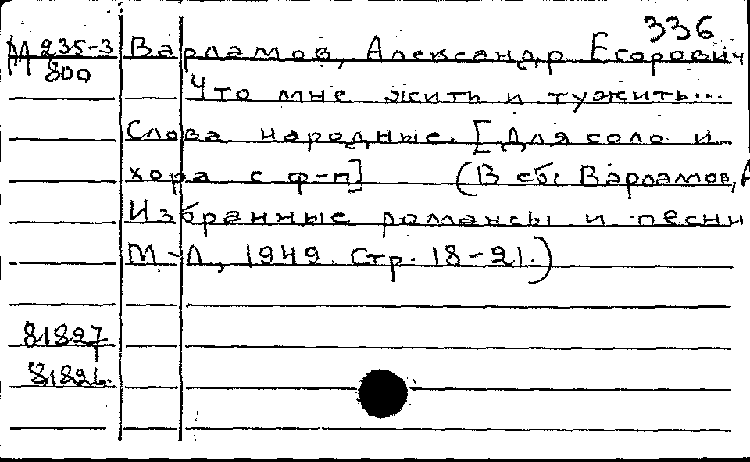 336
М 235-3 Варламов, Александр Егорович
800
Что мне жить и тужить...
Слова народные. [Для соло и
хора с ф-п] (В сб: Варламов, А
Избранные романсы и песни
М-Л, 1949. Стр. 18-21.)
81827
81826.